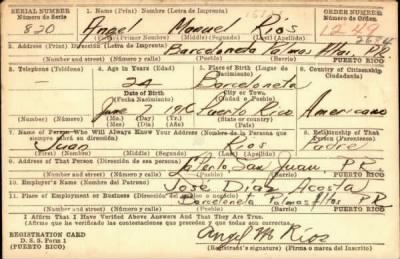 SERIAL NUMBER 1. Name (Print) Nombre (Letra de Imprenta) ORDER NUMBER
Número de Serie Número de Orden
820 Angel Manuel Ríos
(First) (Primer Nombre) (Middle) (Last) (Apellido)
2. Address (Print) Dirección (Letra de Imprenta) Barceloneta Palmas Altas P.R.
(Number) (Número) (Street) (Calle) (Town) (Pueblo) (Barrio) PUERTO RICO
3. Telephone (Teléfono) 4. Age in Years (Edad) 5. Place of Birth (Lugar de Nacimiento) 6. Country of Citizenship Ciudadanía
24 Barceloneta
Date of Birth City or Town.
(Fecha Nacimiento) (Ciudad o Pueblo)
June 7 Puerto Rico Americano
(Number) (Número) (Mo.) (Day) (Yr.) (State or country)
(Mes) (Día) (Año) (Estado o país)
7. Name of Person Who Will Always Know Your Address (Nombre de la Persona que siempre sabrá su dirección) 8. Relationship of That Person (Parentesco)
Juan Ríos Padre
(First) (Nombre) (Middle) (Last) (Apellido)
9. Address of That Person (Dirección de esa persona)
San Juan P.R.
(Number) (Número) (Street) (Calle) (Town) (Pueblo) (Barrio) PUERTO RICO
10. Employer's Name (Nombre del Patrono)
José Díaz Acosta
11. Place of Employment or Business (Dirección del empleo o negocio)
Barceloneta Palmas Altas P.R.
(Number) (Número) (Street) (Calle) (Town) (Pueblo) (Barrio) PUERTO RICO
I Affirm That I Have Verified Above Answers And That They Are True.
(Afirmo que he verificado las contestaciones que preceden y que todas son correctas)
REGISTRATION CARD Angel M. Ríos
D. S. S. Form 1
(PUERTO RICO) Registrant's signature) (Firma o marca del Inscrito)